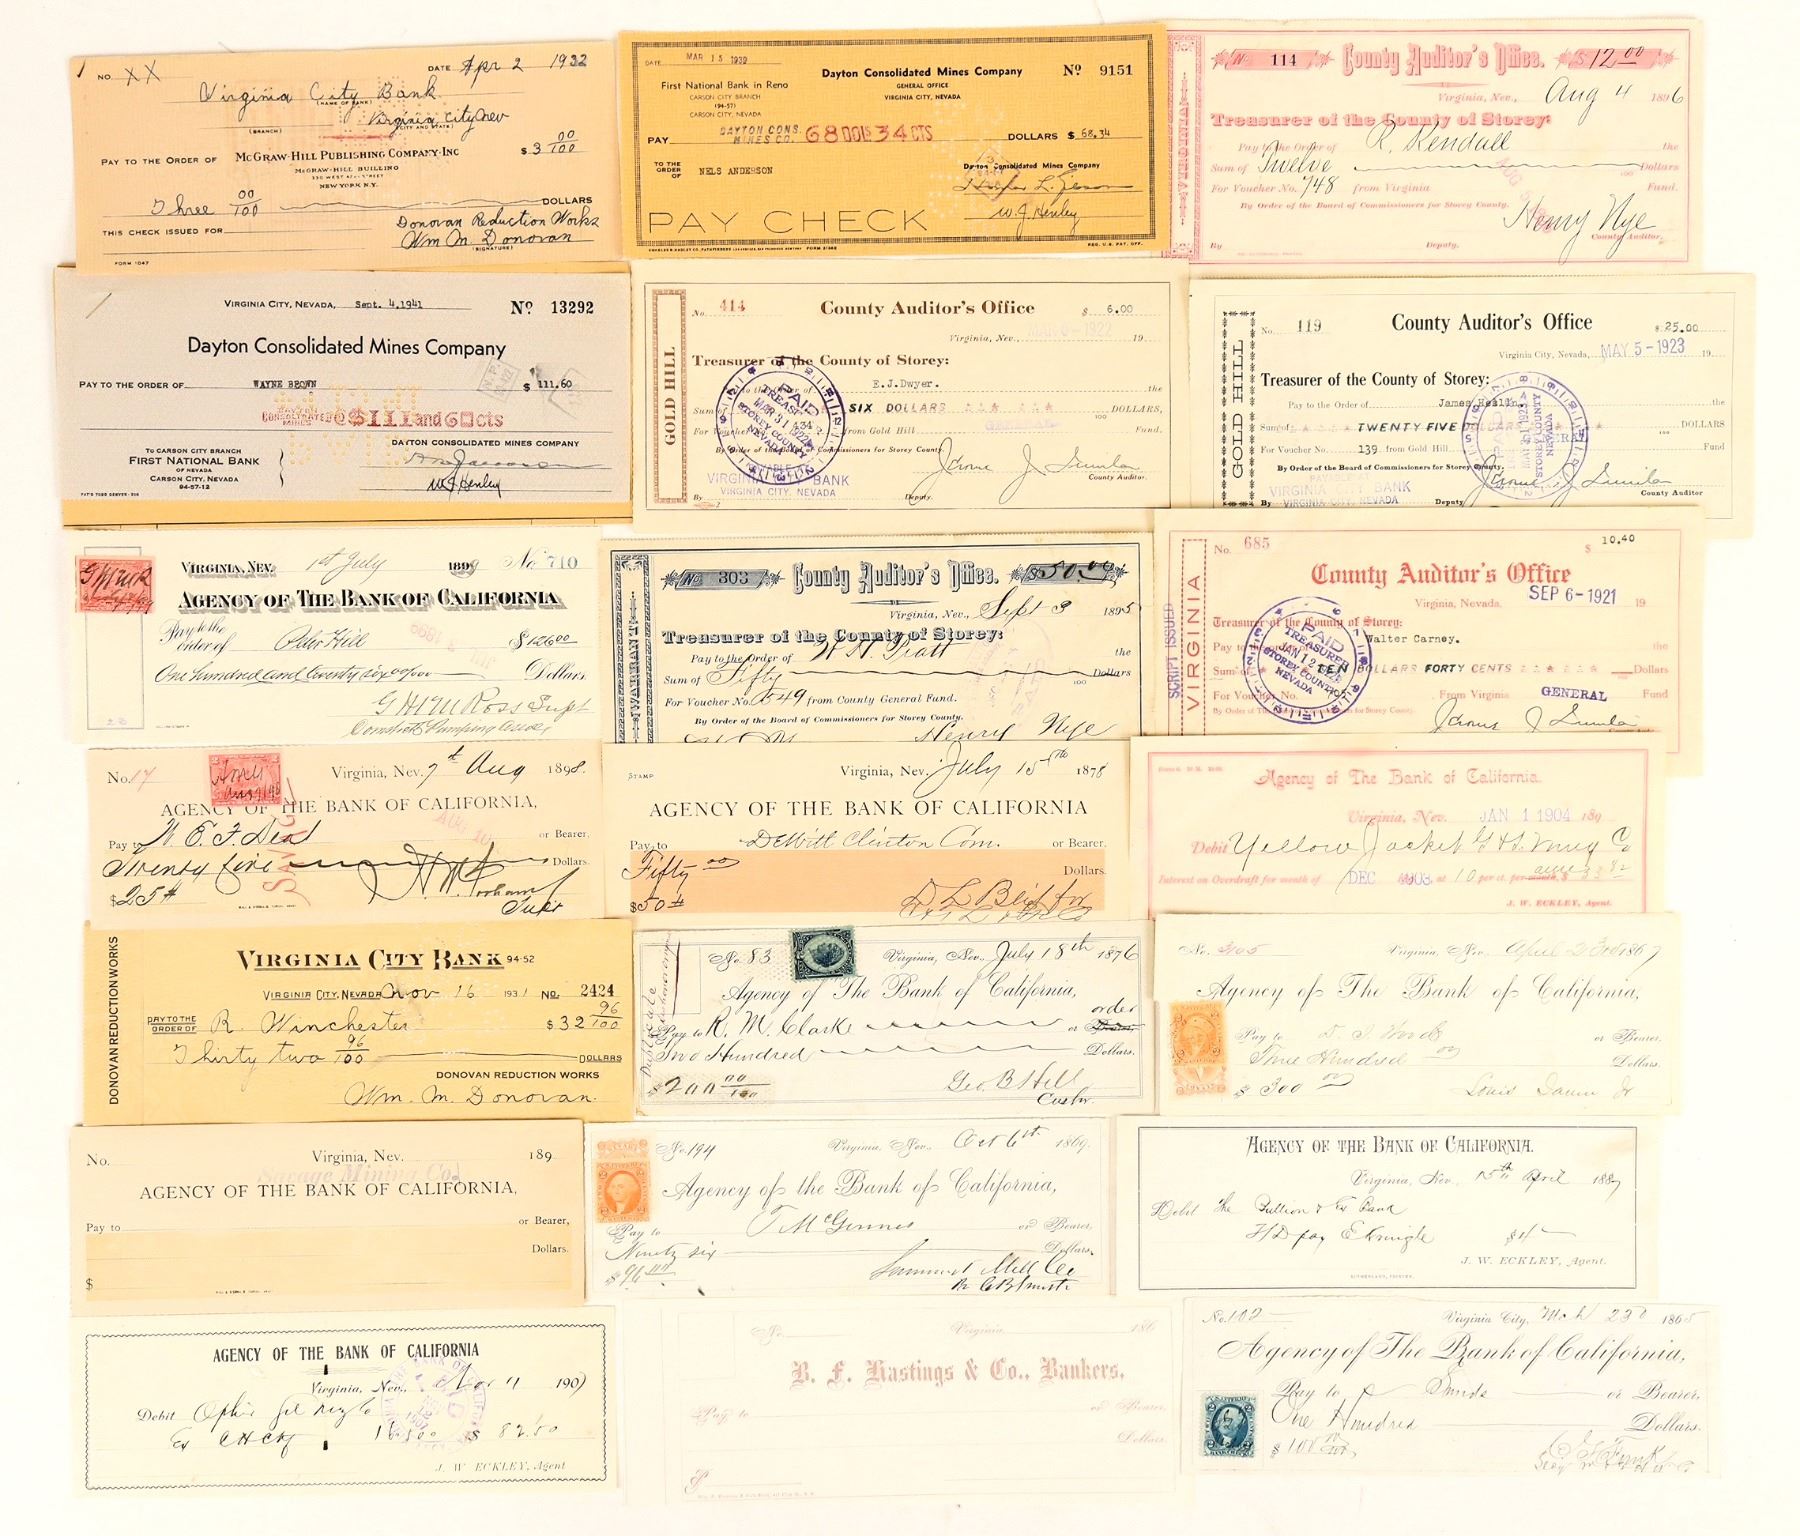 NO. XX DATE Apr 2 1932
Virginia City Bank
(NAME OF BANK)
Virginia City Nev
(BRANCH) (CITY AND STATE)
PAY TO THE ORDER OF MCGRAW-HILL PUBLISHING COMPANY-INC $ 3 00/100
MCGRAW-HILL BUILDING
330 WEST 42ND STREET
NEW YORK N.Y.
Three 00/100 DOLLARS
THIS CHECK ISSUED FOR Donovan Reduction Works
Wm M. Donovan
(SIGNATURE)
FORM 1047
DATE MAR 15 1939
First National Bank in Reno
CARSON CITY BRANCH
(94-57)
CARSON CITY, NEVADA
Dayton Consolidated Mines Company
GENERAL OFFICE
VIRGINIA CITY, NEVADA
Nº 9151
PAY DAYTON CONS. MINES CO. 68 DOLS 34 CTS DOLLARS $ 68.34
TO THE ORDER OF NELS ANDERSON
Dayton Consolidated Mines Company
W. J. Henley
PAY CHECK
REG. U.S. PAT. OFF.
No. 114 County Auditor's Office. $ 12.00
Virginia, Nev., Aug 4 1896
Treasurer of the County of Storey:
Pay to the Order of R. Kendall the
Sum of Twelve Dollars
For Voucher No. 748 from Virginia Fund.
By Order of the Board of Commissioners for Storey County.
Henry Nye
County Auditor.
By Deputy.
VIRGINIA CITY, NEVADA, Sept. 4, 1941 Nº 13292
Dayton Consolidated Mines Company
PAY TO THE ORDER OF WAYNE BROWN $ 111.60
DAYTON CONSOLIDATED MINES $111 and 60 cts
DAYTON CONSOLIDATED MINES COMPANY
TO CARSON CITY BRANCH
FIRST NATIONAL BANK
OF NEVADA
CARSON CITY, NEVADA
94-57-12
W J Henley
No. 414 County Auditor's Office $ 6.00
Virginia, Nev., MAR 6-1922 19
Treasurer of the County of Storey:
Pay to the Order of E.J.Dwyer. the
Sum of SIX DOLLARS DOLLARS,
For Voucher No. 434 from Gold Hill GENERAL Fund.
By Order of the Board of Commissioners for Storey County
GOLD HILL
PAID
TREASURER
STOREY COUNTY
NEVADA
PAYABLE TO
VIRGINIA CITY BANK
VIRGINIA CITY, NEVADA
County Auditor.
By Deputy.
No. 119 County Auditor's Office $ 25.00
Virginia City, Nevada, MAY 5-1923 19
Treasurer of the County of Storey:
Pay to the Order of James the
Sum of TWENTY FIVE DOLLARS DOLLARS
For Voucher No. 139 from Gold Hill GENERAL Fund
By Order of the Board of Commissioners for Storey County.
GOLD HILL
VIRGINIA CITY BANK
VIRGINIA CITY, NEVADA
County Auditor
By Deputy
VIRGINIA, NEV. 1st July 1899 No 710
AGENCY OF THE BANK OF CALIFORNIA
Pay to the order of Peter Hill $ 126.00
One Hundred and twenty six 00/100 Dollars
Ross Supt
Comstock Pumping Assoc
No 303 County Auditor's Office. $ 50.00
Virginia, Nev., Sept 3 1895
Treasurer of the County of Storey:
Pay to the Order of W H Pratt the
Sum of Fifty Dollars
For Voucher No. 549 from County General Fund.
By Order of the Board of Commissioners for Storey County.
Henry Nye
WARRANT
No. 685 $ 10.40
County Auditor's Office
Virginia, Nevada. SEP 6-1921 19
Treasurer of the County of Storey:
Walter Carney. the
Sum of TEN DOLLARS FORTY CENTS Dollars
For Voucher No. From Virginia GENERAL Fund
By Order of The Board of Commissioners for Storey County.
SCRIPT ISSUED
VIRGINIA
PAID
TREASURER
STOREY COUNTY
NEVADA
No. 17 Virginia, Nev. 7th Aug 1898.
AGENCY OF THE BANK OF CALIFORNIA,
Pay to W. E. F. Deal or Bearer,
Twenty five Dollars.
$ 25 Supt
STAMP Virginia, Nev. July 15th 1878
AGENCY OF THE BANK OF CALIFORNIA
Pay to DeWitt Clinton Com. or Bearer.
Fifty 00 Dollars.
$ 50
Agency of The Bank of California.
Virginia, Nev. JAN 1 1904 189
Debit Yellow Jacket G & S. Mng Co
Interest on Overdraft for month of DEC 1903 at 10 per ct. per
J. W. ECKLEY, Agent.
DONOVAN REDUCTION WORKS
VIRGINIA CITY BANK 94-52
VIRGINIA CITY, NEVADA Nov 16 1931 NO. 2424
PAY TO THE ORDER OF R. Winchester $ 32 96/100
Thirty two 96/100 DOLLARS
DONOVAN REDUCTION WORKS
Wm. M. Donovan.
No. 83 Virginia, Nev. July 18th 1876
Agency of The Bank of California,
Pay to R. M. Clarke or order
Two Hundred Dollars.
$ 200 00/100 Geo. B Hill
Duplicate
No. 3105 Virginia, Nev. April 23rd 1867
Agency of The Bank of California,
Pay to or Bearer.
Three Hundred 00 Dollars.
$ 300 00
No. Virginia, Nev. 189
Savage Mining Co.
AGENCY OF THE BANK OF CALIFORNIA,
Pay to or Bearer,
Dollars.
$
No. 194 Virginia, Nev., Oct 6th 1869.
Agency of the Bank of California,
Pay to T McGinnes or Bearer,
Ninety six Dollars,
$ 96 Summit Mill Co
AGENCY OF THE BANK OF CALIFORNIA.
Virginia, Nev., 15th April 1887
Debit The Bullion & Ex Bank
J. W. ECKLEY, Agent.
AGENCY OF THE BANK OF CALIFORNIA
Virginia, Nev., Nov 11 1907
Debit Ophir
$ 82.50
J. W. ECKLEY, Agent
No. Virginia 186
B. F. Hastings & Co., Bankers,
Pay to or Bearer,
Dollars.
$
No. 102 Virginia City, Mch 23d 1865
Agency of The Bank of California,
Pay to or Bearer,
One Hundred Dollars.
$ 100